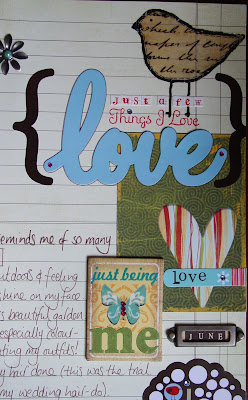 just a few
Things I Love
love
eminds me of so many
tdoors & feeling
shine on my face
s beautiful garden
especially colour-
ating my outfits!
hair done (this was the trial
my wedding hair-do).
just being
me
love
JUNE